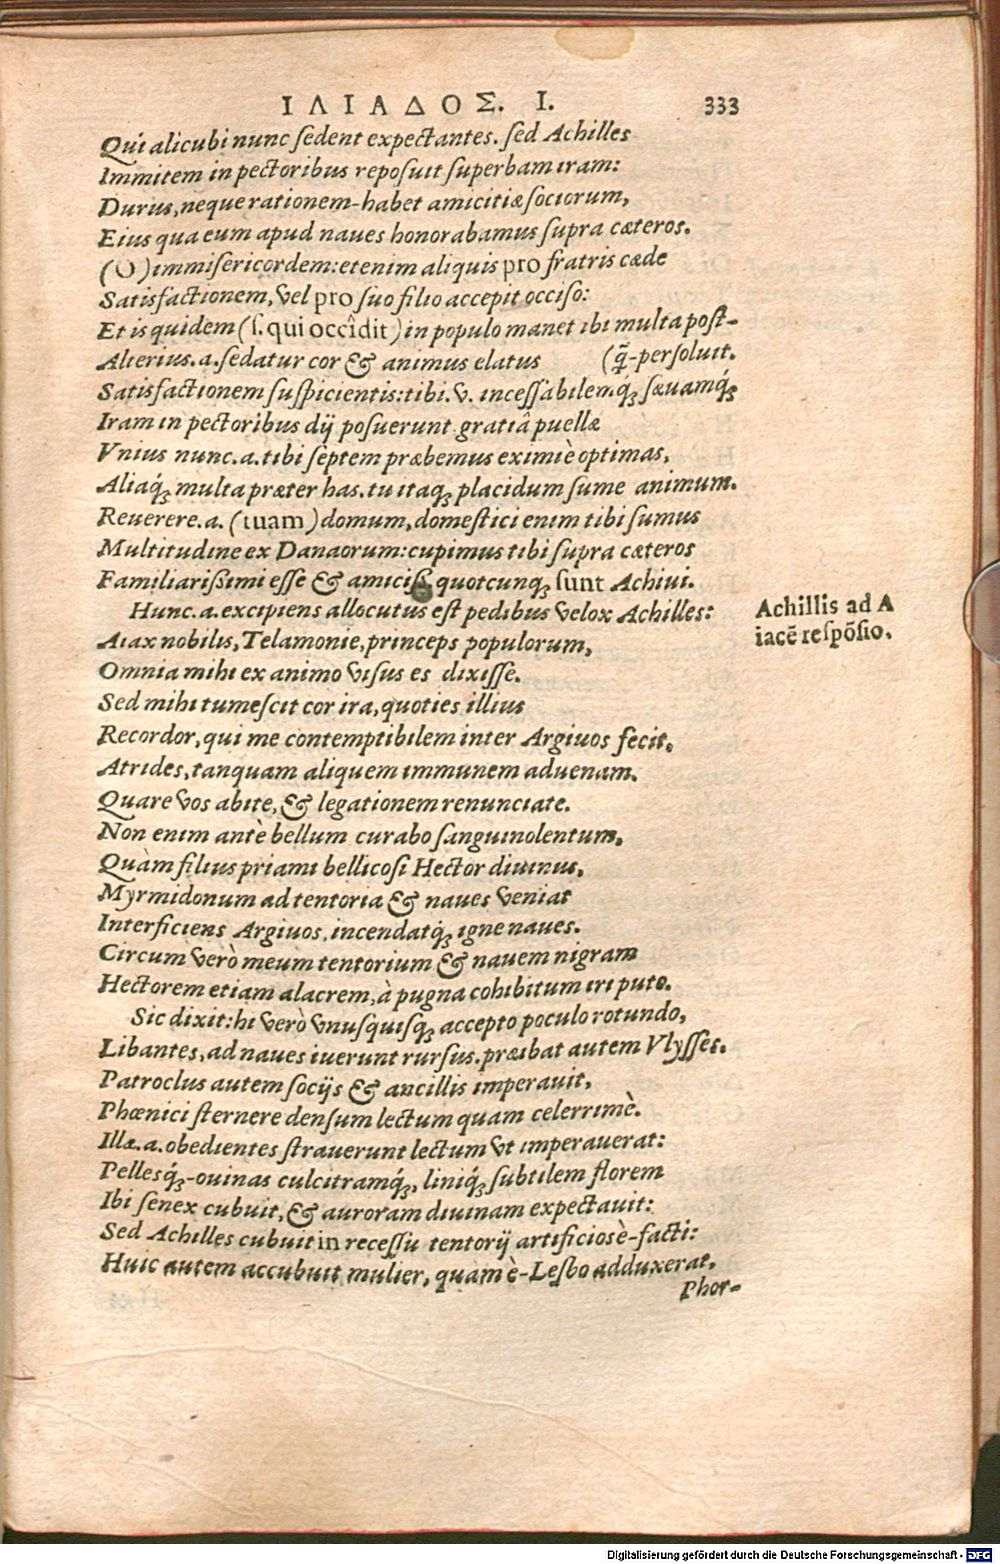 ΙΛΙΑΔΟΣ. Ι. 333
Qui alicubi nunc ſedent expectantes. ſed Achilles
Immitem in pectoribus reposuit ſuperbam iram:
Durus, neque rationem-habet amicitiæ ſociorum,
Eius qua eum apud naues honorabamus ſupra cæteros.
(O) immiſericordem: etenim aliquis pro fratris cæde
Satisfactionem, vel pro ſuo filio accepit occiſo:
Et is quidem (ſ. qui occîdit) in populo manet ibi multa poſt-
Alterius. a. ſedatur cor & animus elatus (q̃-perſoluit.
Satisfactionem ſuſpicientis: tibi. v. inceſſabilemq́; ſæuamq́;
Iram in pectoribus dij poſuerunt gratiâ puellæ
Vnius nunc. a. tibi ſeptem præbemus eximiè optimas,
Aliaq́; multa præter has. tu itaq; placidum ſume animum.
Reuerere. a. (tuam) domum, domeſtici enim tibi ſumus
Multitudine ex Danaorum: cupimus tibi ſupra cæteros
Familiarißimi eſſe & amiciß. quotcunq; ſunt Achiui.
Hunc. a. excipiens allocutus eſt pedibus velox Achilles:
Achillis ad A
iacē reſpōſio.
Aiax nobilis, Telamonie, princeps populorum,
Omnia mihi ex animo viſus es dixiſſe.
Sed mihi tumeſcit cor ira, quoties illius
Recordor, qui me contemptibilem inter Argiuos fecit,
Atrides, tanquam aliquem immunem aduenam.
Quare vos abite, & legationem renunciate.
Non enim antè bellum curabo ſanguinolentum,
Quàm filius priami bellicoſi Hector diuinus,
Myrmidonum ad tentoria & naues veniat
Interficiens Argiuos, incendatq́; igne naues.
Circum verò meum tentorium & nauem nigram
Hectorem etiam alacrem, à pugna cohibitum iri puto.
Sic dixit: hi verò vnuſquiſq; accepto poculo rotundo,
Libantes, ad naues iuerunt rurſus. præibat autem Vlyſſes.
Patroclus autem ſocijs & ancillis imperauit,
Phœnici ſternere denſum lectum quam celerrimè.
Illæ. a. obedientes ſtrauerunt lectum vt imperauerat:
Pellesq́;-ouinas culcitramq́;, liniq́; ſubtilem florem
Ibi ſenex cubuit, & auroram diuinam expectauit:
Sed Achilles cubuit in receſſu tentorij artificiosè-facti:
Huic autem accubuit mulier, quam è-Leſbo adduxerat,
Phor-
Digitalisierung gefördert durch die Deutsche Forschungsgemeinschaft - DFG